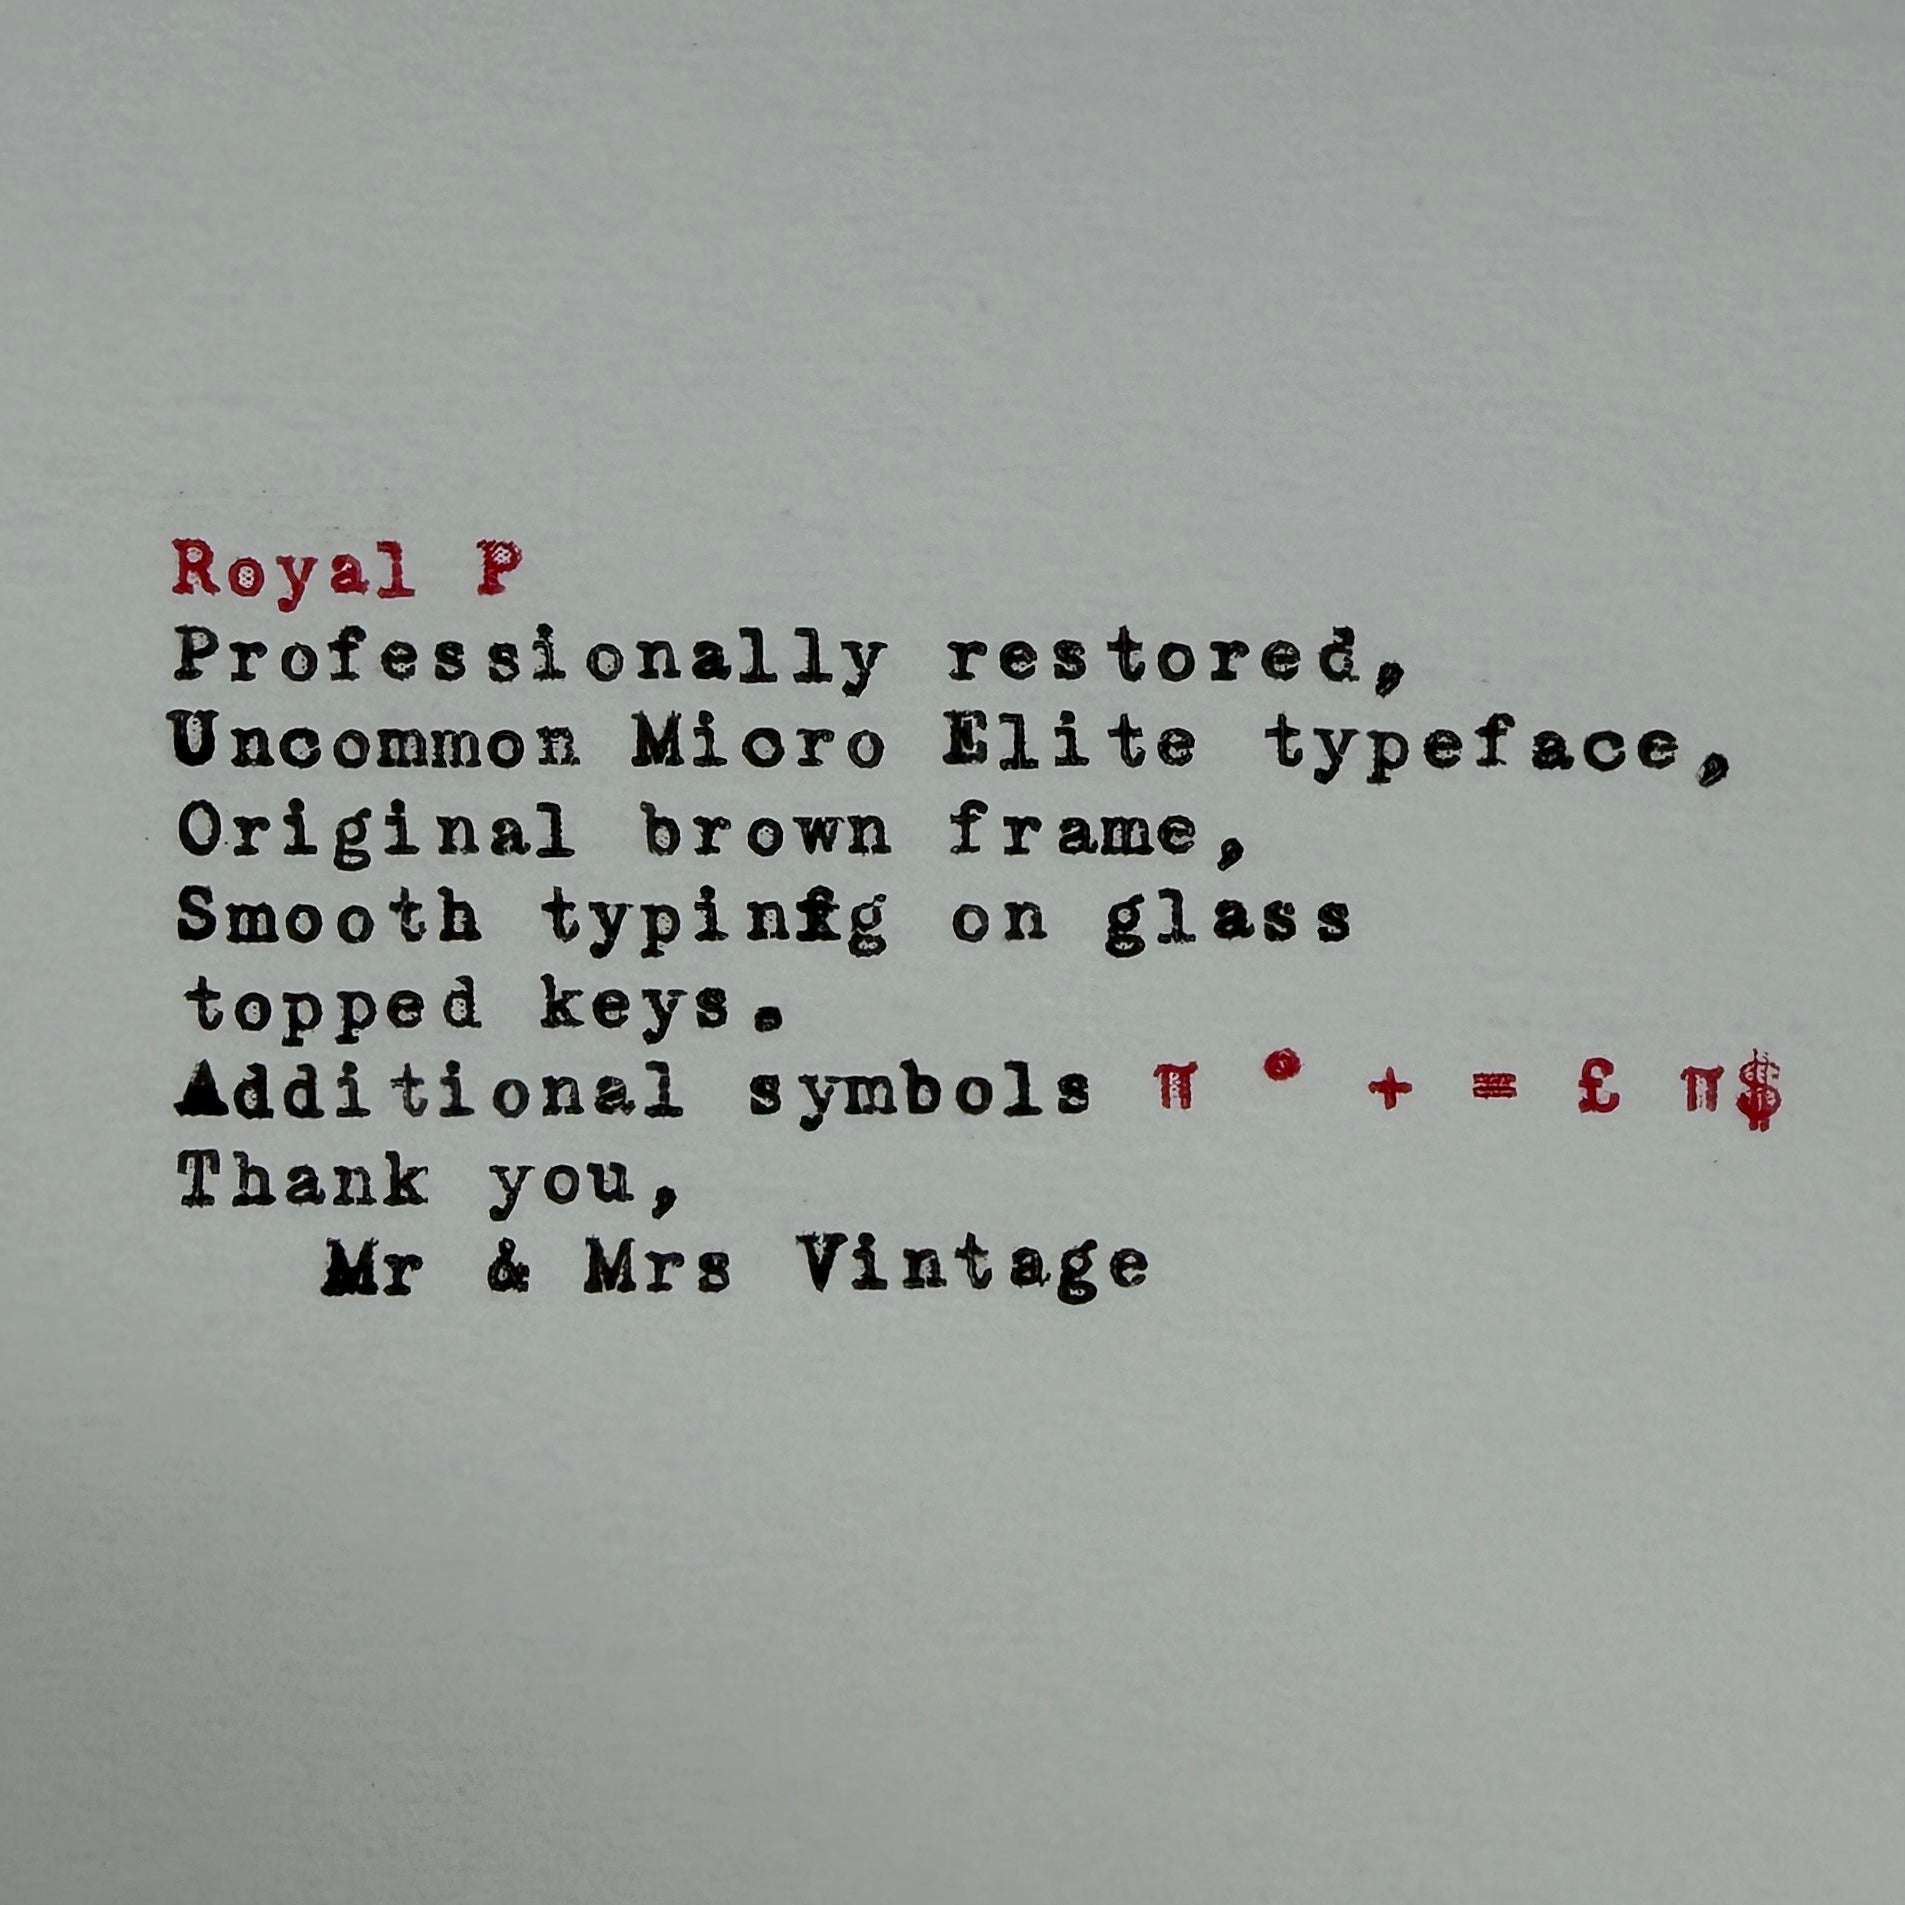 Royal P
Professionally restored,
Uncommon Micro Elite typeface,
Original brown frame,
Smooth typinfg on glass
topped keys.
Additional symbols π ° + = £ π$
Thank you,
Mr & Mrs Vintage